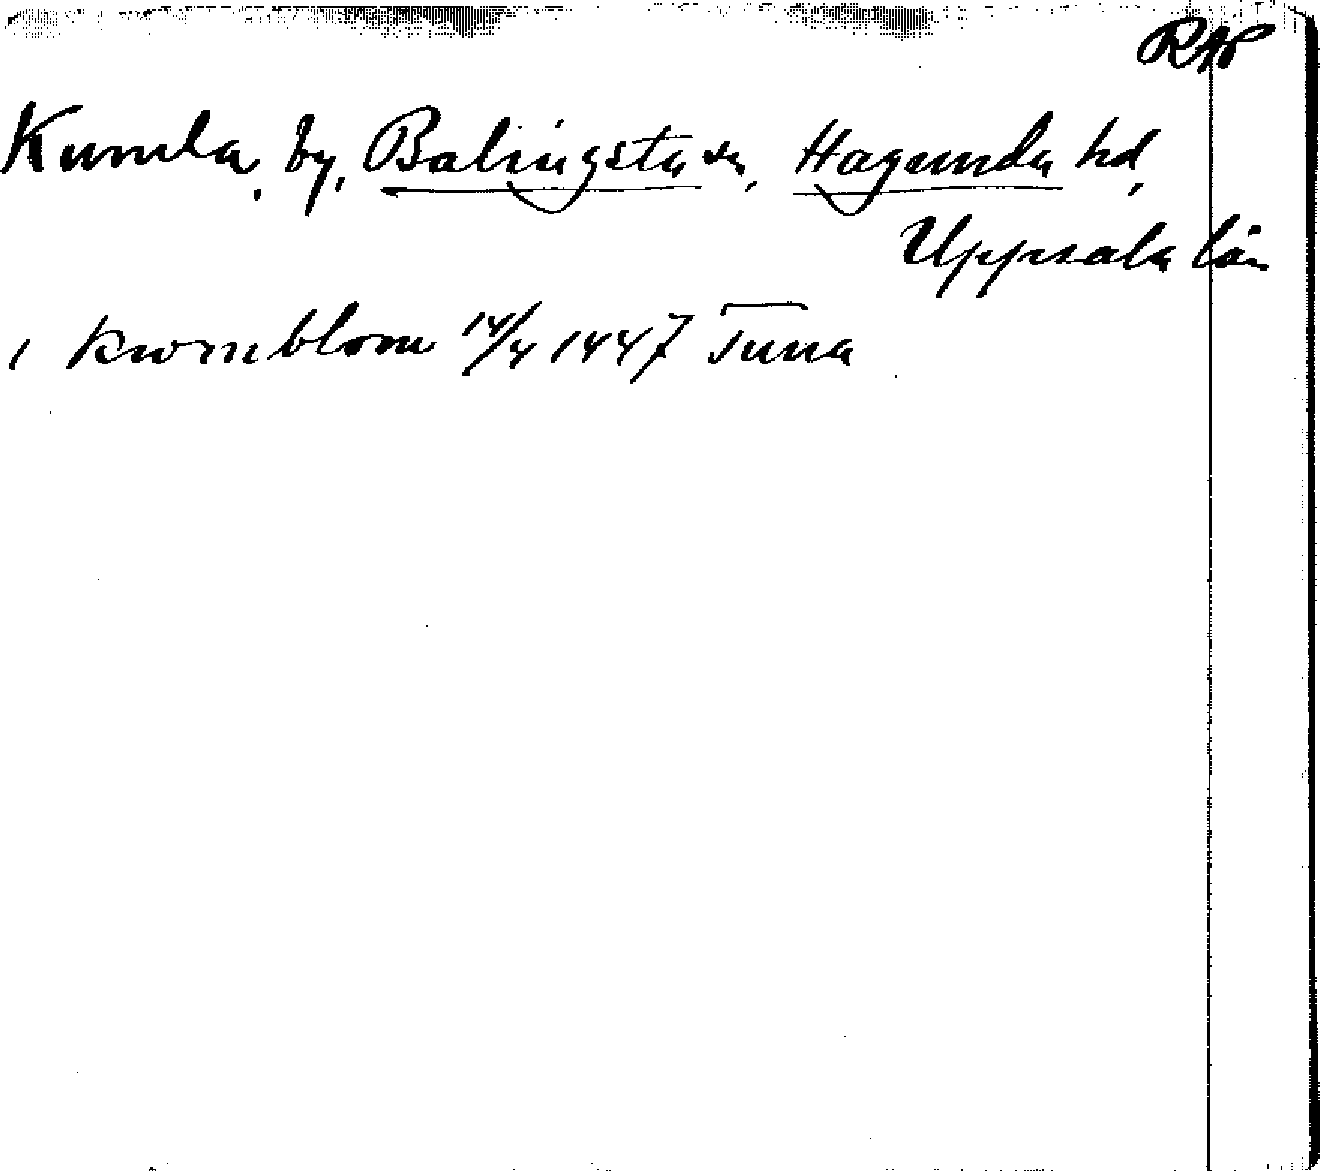 RAP
Kumla, by, Balingsta sn, Hagunda hd,
Uppsala län
i kwmblom 14/4 1447 Tuna